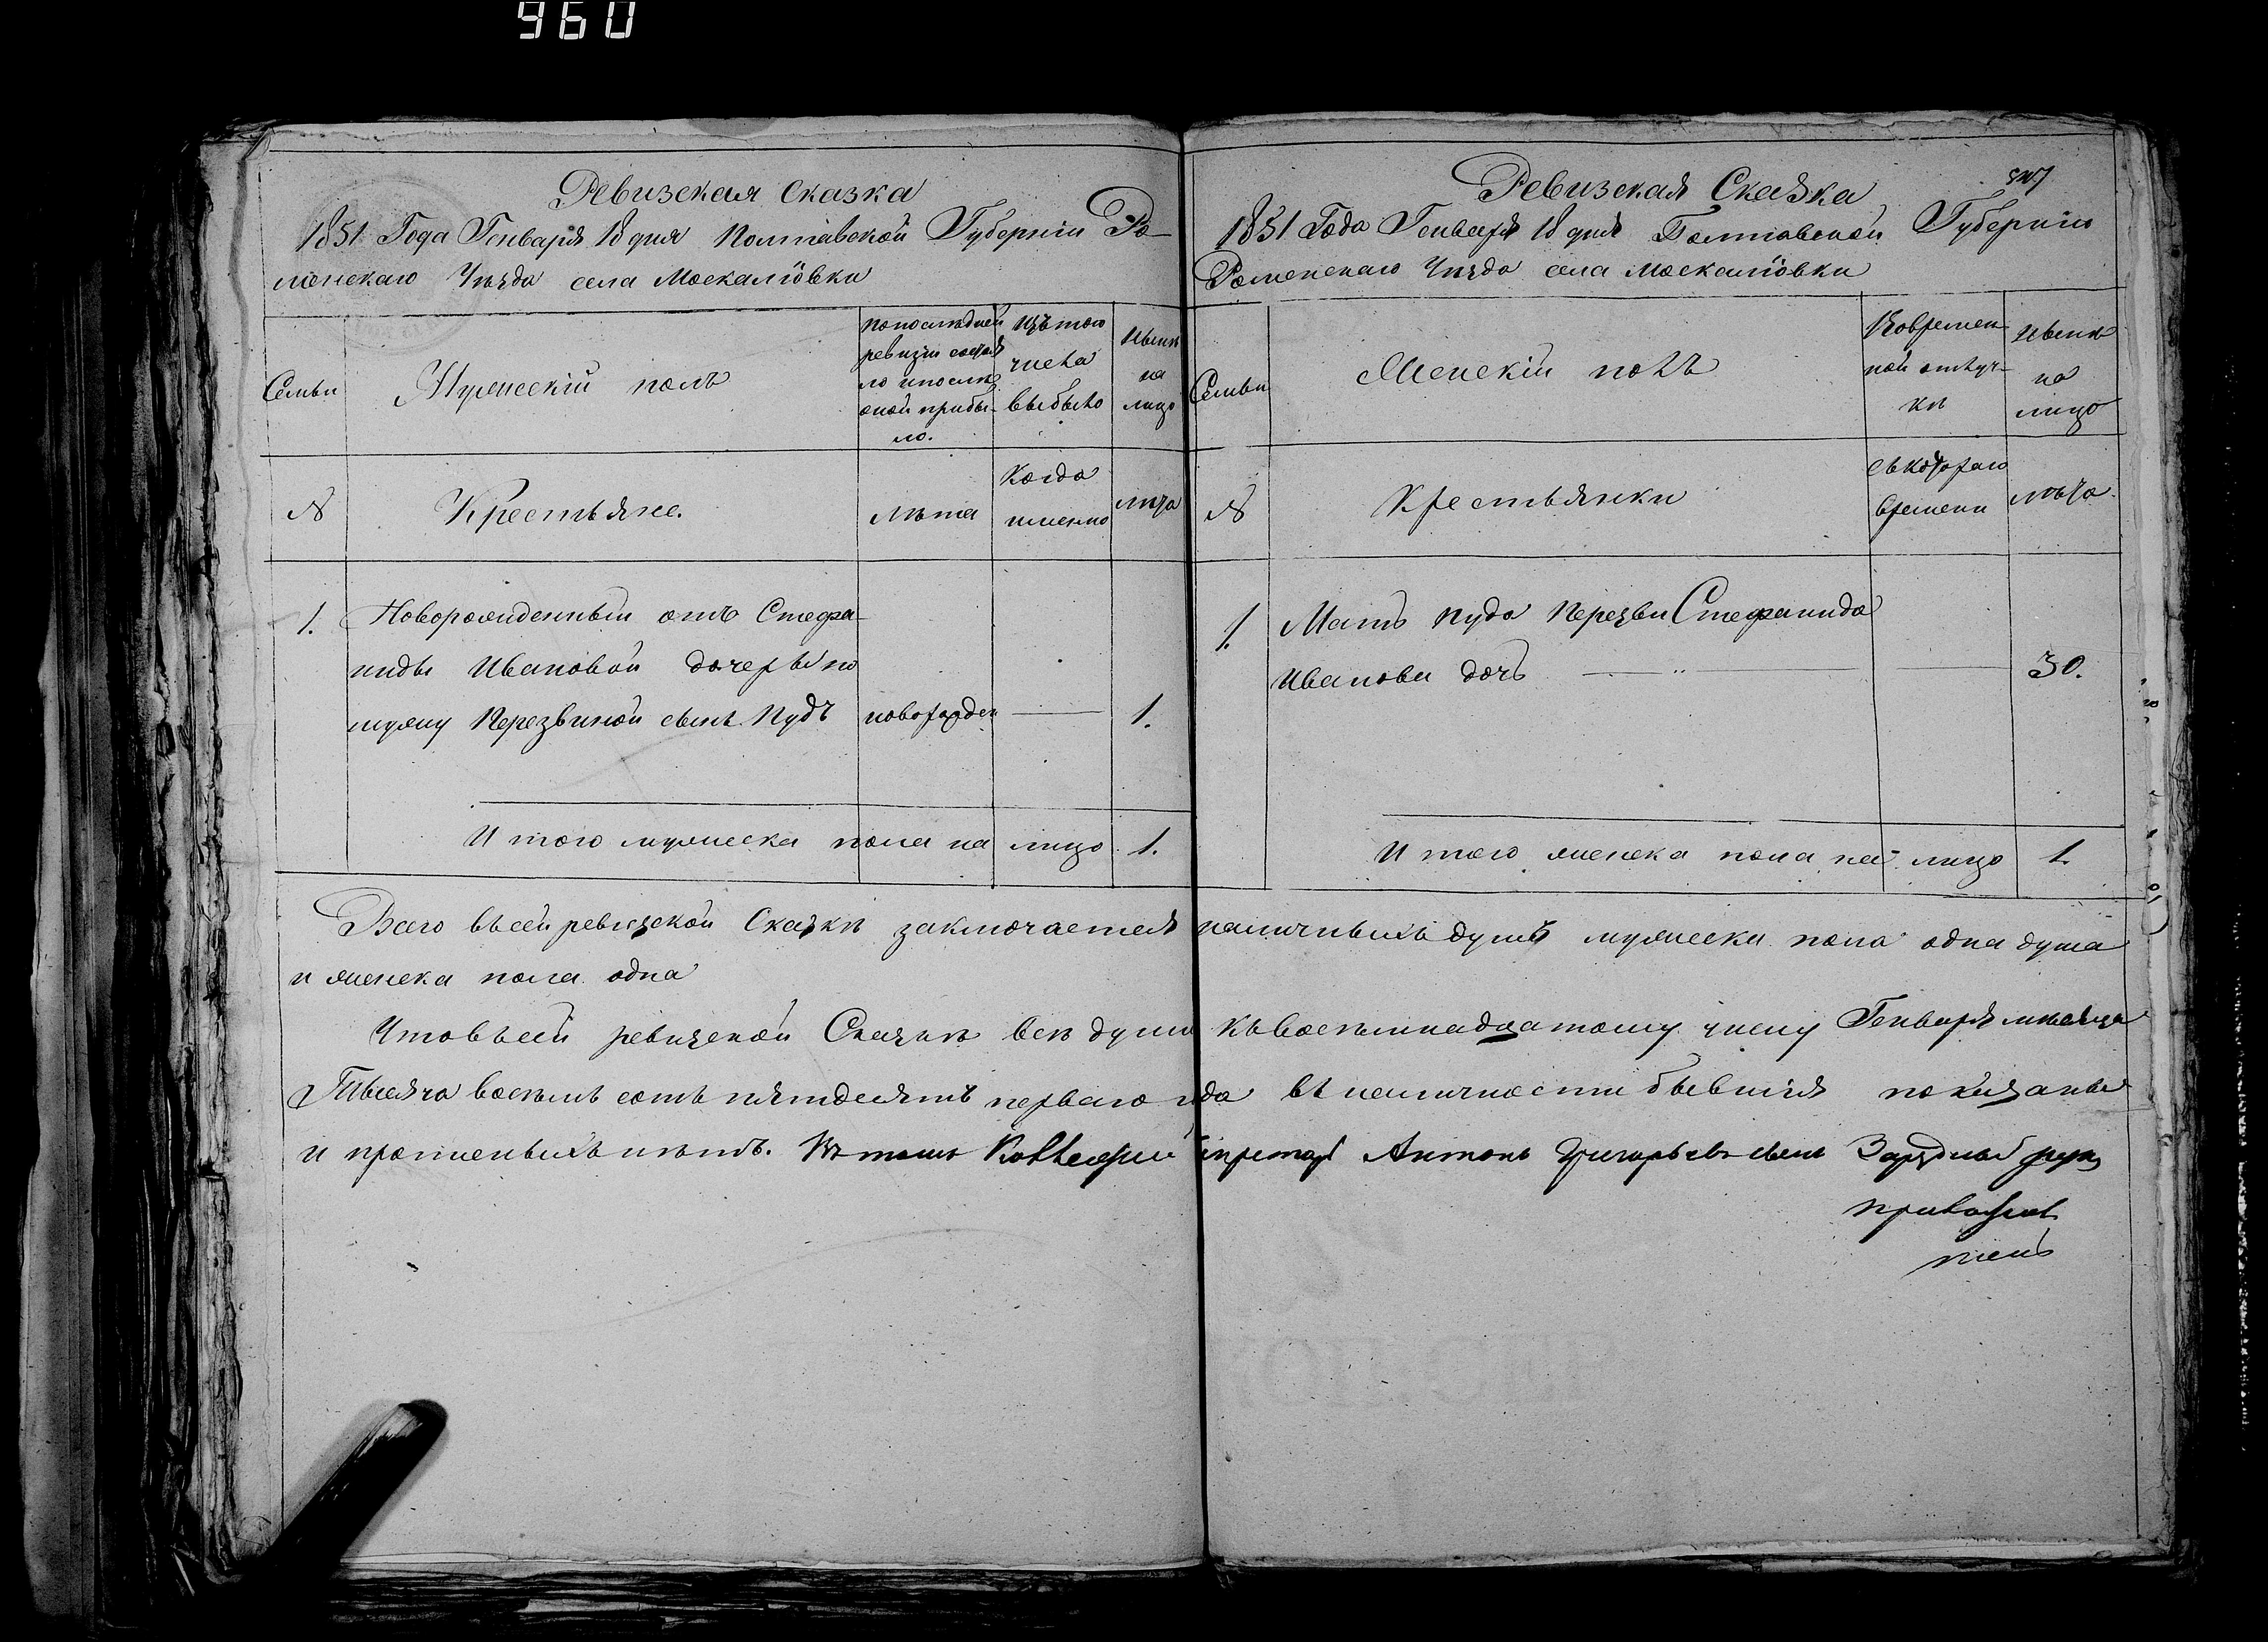 960
Ревизская Сказка
1851 Года Генваря 18 дня Полтавской Губернии Ро-
менскаго Уѣзда села Москалiовки
Семьи
Мужескiй полъ
попослѣдней
ревизiи состоя
ло ипослѣ
оной прибы-
ло.
Изътого
числа
выбыло
Нынѣ
на
лицо
№
Крестьяне.
лѣта
Когда
именно
лѣта
1. Новорожденный отъ Стефа-
ниды Ивановой дочеры по
мужу Перезвиной сынъ Пудъ новорожден 1.
И того мужеска пола на лицо 1.
Ревизская Сказка
1851 Года Генваря 18 дня Полтавской Губернiи
Роменскаго Уѣзда села Москалiовки
Семьи
Женскiй полъ
Вовремен-
ной отлуч-
кѣ
Нынѣ
на
лицо
№
Крестьянки
Съкотораго
времени
лѣта.
1. Мать Пуда Перезвы Стефанида
Иванова дочь 30.
И того женска пола на лицо 1.
Всего въсей ревизской Сказкѣ заключается наличныхъ душъ мужеска пола одна душа
и женска пола одна
Чтовъсей ревизской Сказкѣ всѣ души къвосемьнадцатому числу Генваря мѣсяца
Тысяча восемь сотъ пятдесятъ перваго года въ наличности бывшiя показаны
и прописныхъ нѣтъ. Въ томъ Коллежскiй Секретарь Антонъ Григорьевъ сынъ руку
приложил